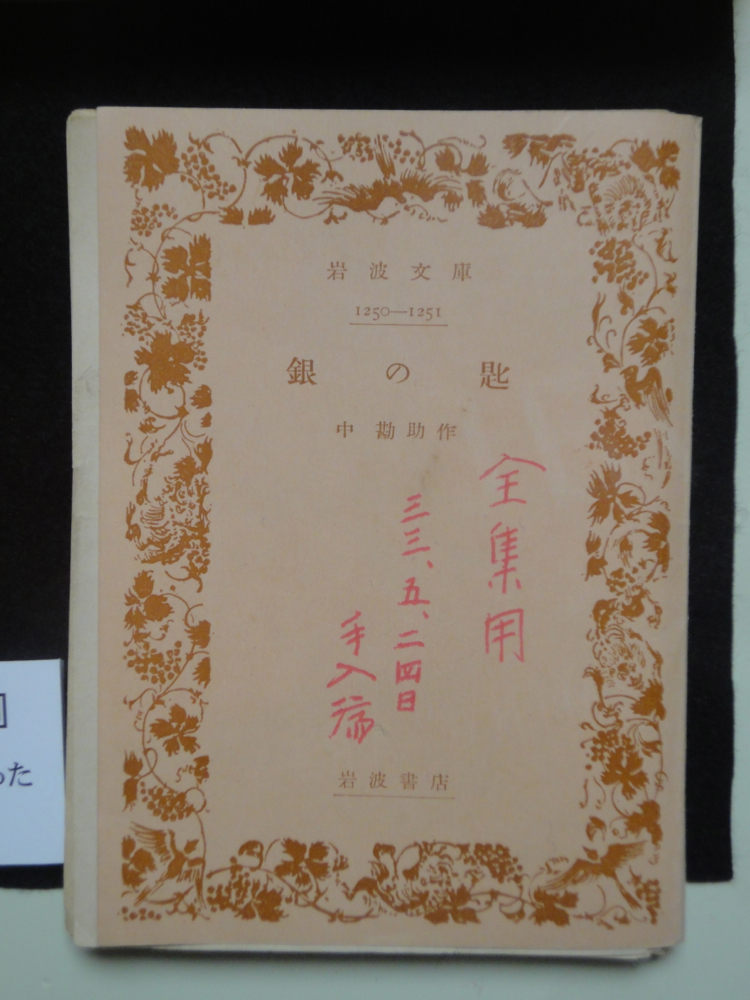 岩波文庫
1250—1251
銀の匙
中勘助作
全集用
三三、五、二四日
手入稿
岩波書店
った